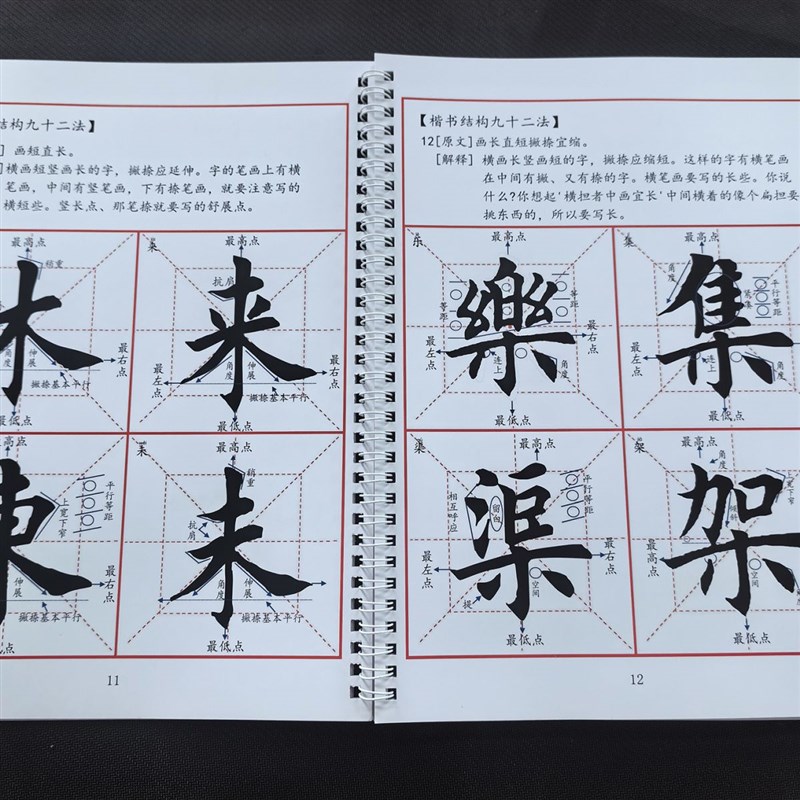 结构九十二法】
] 画短直长。
]横画短竖画长的字，撇捺应延伸。字的笔画上有横
笔画，中间有竖笔画，下有捺笔画，就要注意写的
横短些。竖长点、那笔捺就要写的舒展点。
最高点
稍重
木
角度
伸展
最右点
撇捺基本平行
最低点
来
最高点
抗肩
来
最左点
角度
伸展
最右点
撇捺基本平行
最低点
最高点
上宽下窄
平行等距
東
伸展
最右点
撇捺基本平行
最低点
未
稍重
抗肩
未
角度
伸展
撇捺基本平行
最低点
11
【楷书结构九十二法】
12[原文]画长直短撇捺宜缩。
[解释] 横画长竖画短的字，撇捺应缩短。这样的字有横笔画
在中间有撇、又有捺的字。横笔画要写的长些。你说
什么?你想起'横担者中画宜长'中间横着的像个扁担要
挑东西的，所以要写长。
乐
最高点
等距
等距
樂
最左点
连上
角度
最右点
最低点
集
最高点
角度
紧集
平行等距
集
最左点
连上
角度
最低点
渠
最高点
相互呼应
留白
平行等距
渠
最左点
最右点
提
空间
最低点
架
最高点
角度
上宽下窄
倾斜
架
最高点
空间
最低点
12